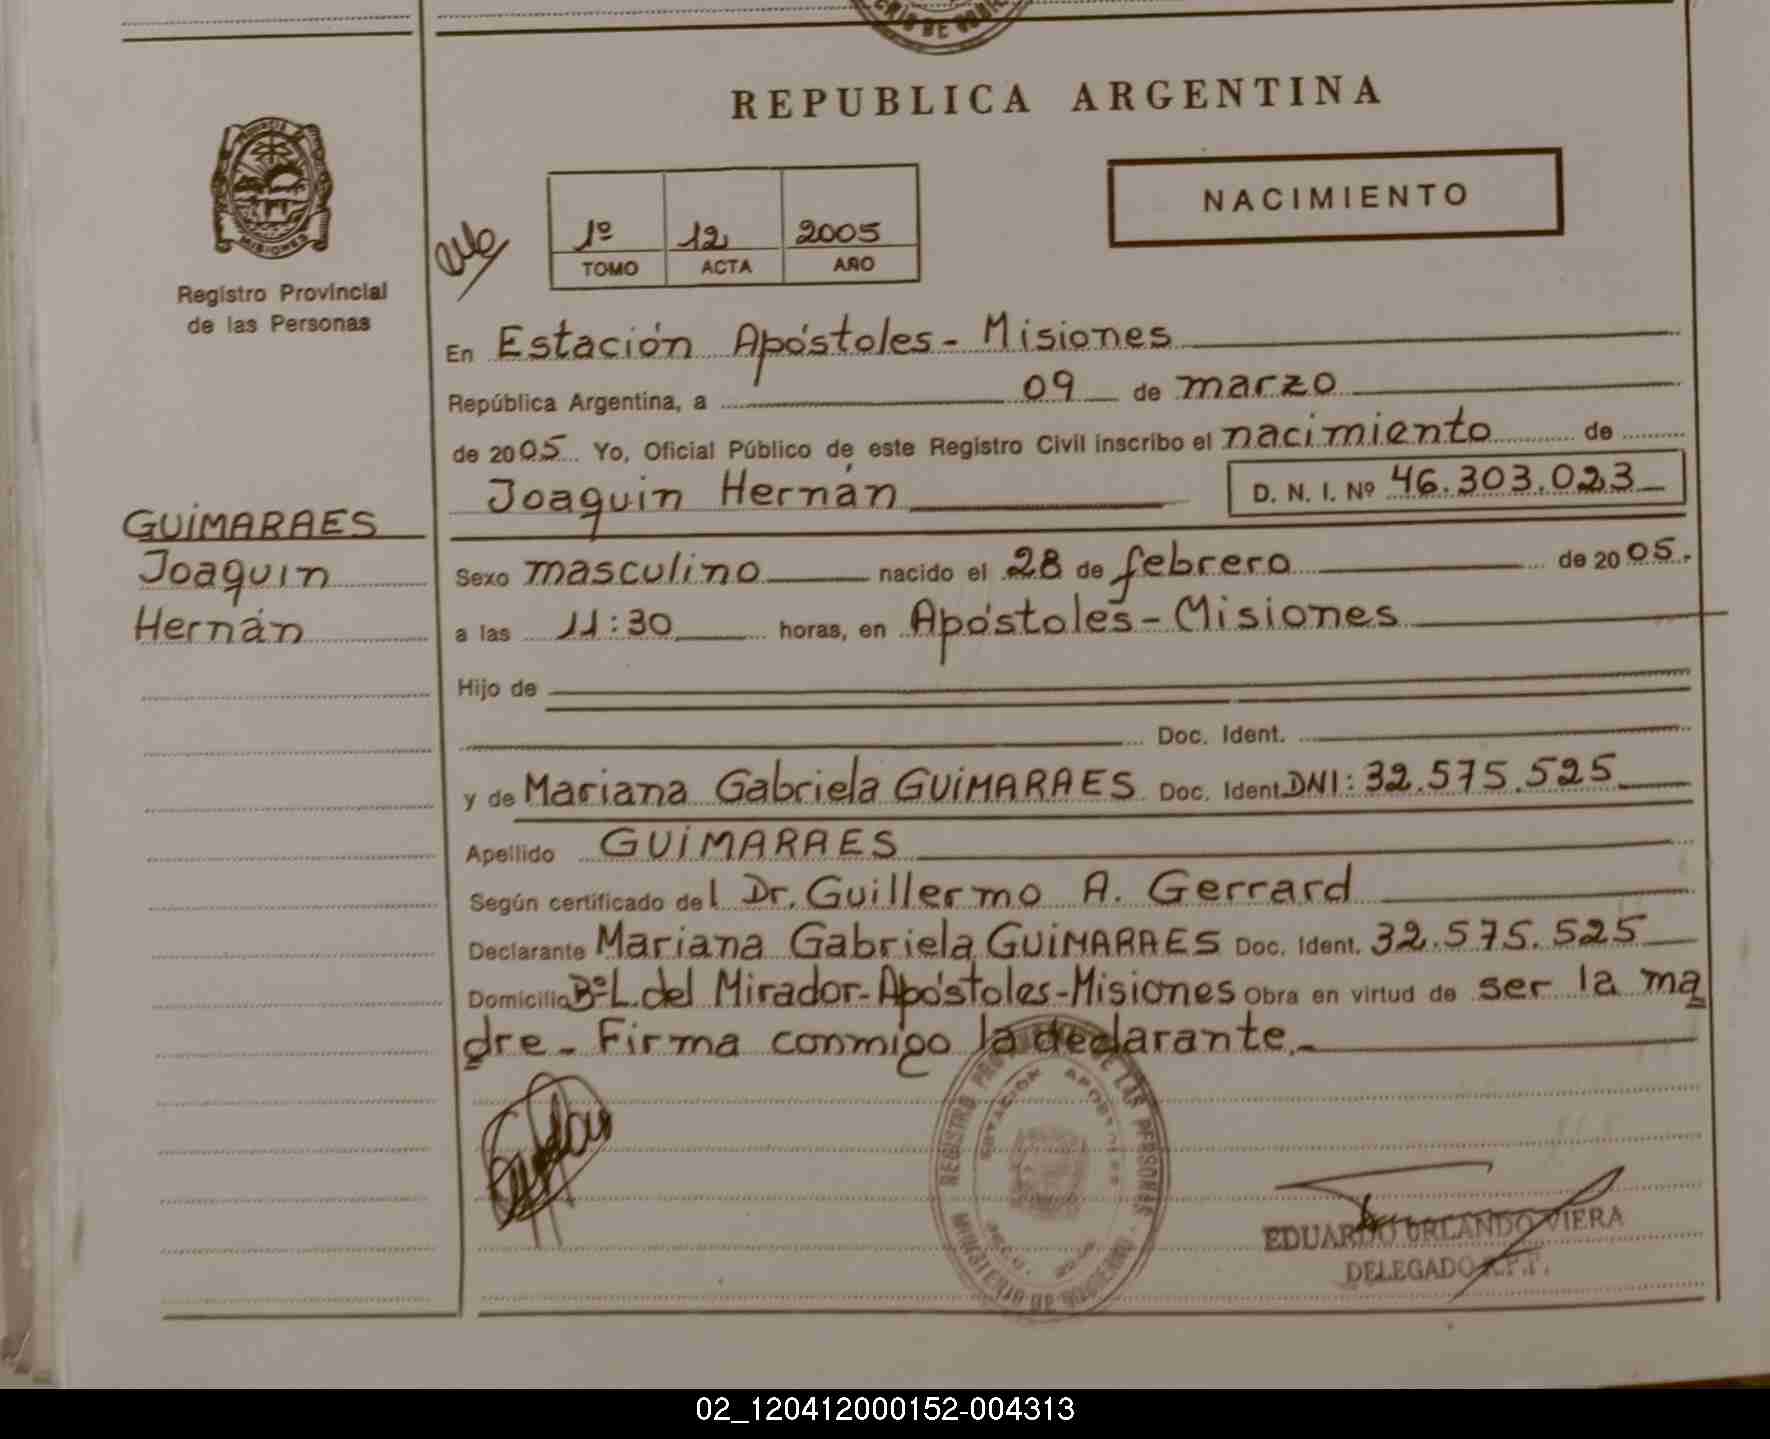 CRIO DE GOBIE
REPUBLICA ARGENTINA
PROVINCIA DE
MISIONES
Registro Provincial
de las Personas
1º 12 2005
TOMO ACTA AÑO
NACIMIENTO
En Estación Apóstoles - Misiones
República Argentina, a 09 de marzo
de 2005 Yo, Oficial Público de este Registro Civil inscribo el nacimiento de
Joaquin Hernán D. N. I. Nº 46.303.023
GUIMARAES
Joaquin
Hernán
Sexo masculino nacido el 28 de febrero de 2005.
a las 11:30 horas, en Apóstoles - Misiones
Hijo de
Doc. Ident.
y de Mariana Gabriela GUIMARAES Doc. Ident. DNI: 32.575.525
Apellido GUIMARAES
Según certificado del Dr. Guillermo A. Gerrard
Declarante Mariana Gabriela GUIMARAES Doc. Ident. 32.575.525
Domicilio Bº L. del Mirador - Apóstoles - Misiones Obra en virtud de ser la ma
dre - Firma conmigo la declarante.-
REGISTRO PROV DE LAS PERSONAS
ESTACION APOSTOLES
MINISTERIO DE GOBIERNO
EDUARDO ORLANDO VIERA
DELEGADO R.P.P.
02_120412000152-004313